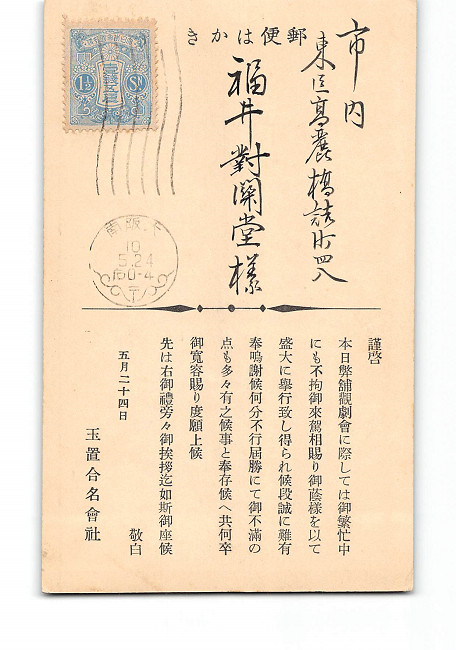 郵便はかき
市内
東区高麗橋詰町四八
福井對関堂様
1½ Sn
大阪南
10
5.24
謹啓
本日弊舗觀劇會に際しては御繁忙中
にも不拘御來駕相賜り御蔭樣を以て
盛大に舉行致し得られ候段誠に難有
奉嗚謝候何分不行屆勝にて御不滿の
点も多々有之候事と奉存候へ共何卒
御寬容賜り度願上候
先は右御禮旁々御挨拶迄如斯御座候
敬白
五月二十四日
玉置合名會社